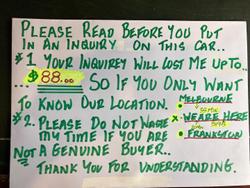 PLEASE READ BEFORE YOU PUT
IN AN INQUIRY ON THIS CAR..
#1 YOUR INQUIREY WILL COST ME UPTO..
$88.00... SO IF YOU ONLY WANT
TO KNOW OUR LOCATION.
• MELBOURNE
X WEARE HERE
• FRANKSTON
#2. PLEASE DO NOT WASTE
MY TIME IF YOU ARE
NOT A GENUINE BUYER..
THANK YOU FOR UNDERSTANDING.